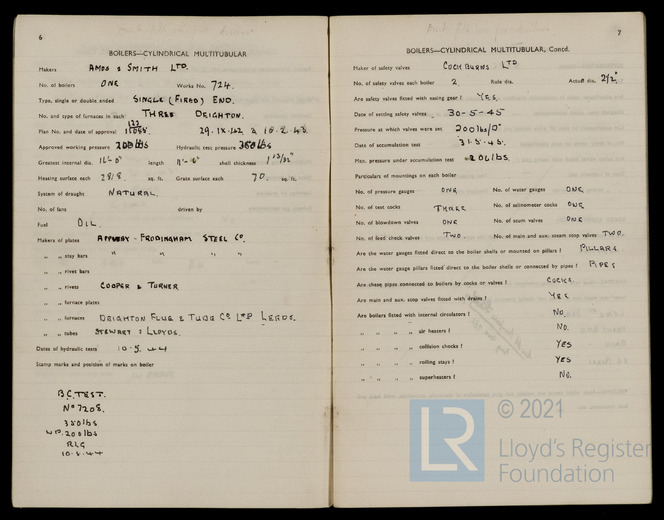 6
BOILERS—CYLINDRICAL MULTITUBULAR
Makers AMOS & SMITH LTD.
No. of boilers ONE Works No. 724.
Type, single or double ended SINGLE (FIRED) END.
No. and type of furnaces in each THREE DEIGHTON.
Plan No. and date of approval 29.IX.42 & 10.2.43.
Approved working pressure 200lbs Hydraulic test pressure 350lbs
Greatest internal dia. length shell thickness 1 13/32"
Heating surface each 2818. sq. ft. Grate surface each 70. sq. ft.
System of draught NATURAL.
No. of fans driven by
Fuel OIL.
Makers of plates APPLEBY-FRODINGHAM STEEL CO.
„ „ stay bars " " " "
„ „ rivet bars
„ „ rivets COOPER & TURNER
„ „ furnace plates
„ „ furnaces DEIGHTON FLUE & TUBE CO LTD LEEDS.
„ „ tubes STEWART & LLOYDS.
Dates of hydraulic tests 10.5.44
Stamp marks and position of marks on boiler
B.C. TEST.
No 7208.
350lbs
W.P. 200lbs
RLG
10.5.44
7
BOILERS—CYLINDRICAL MULTITUBULAR, Contd.
Maker of safety valves COCKBURNS LTD
No. of safety valves each boiler 2. Rule dia. Actual dia. 2½"
Are safety valves fitted with easing gear? YES.
Date of setting safety valves 30-5-45
Pressure at which valves were set 200lbs/□"
Date of accumulation test 31.5.45.
Max. pressure under accumulation test 206lbs.
Particulars of mountings on each boiler
No. of pressure gauges ONE No. of water gauges ONE
No. of test cocks THREE No. of salinometer cocks ONE
No. of blowdown valves ONE No. of scum valves ONE
No. of feed check valves TWO No. of main and aux. steam stop valves TWO.
Are the water gauges fitted direct to the boiler shells or mounted on pillars? PILLARS
Are the water gauge pillars fitted direct to the boiler shells or connected by pipes? PIPES
Are these pipes connected to boilers by cocks or valves? COCKS.
Are main and aux. stop valves fitted with drains? YES
Are boilers fitted with internal circulators? NO.
„ „ „ „ air heaters? NO.
„ „ „ „ collision chocks? YES
„ „ „ „ rolling stays? YES
„ „ „ „ superheaters? NO.
© 2021
LR
Lloyd's Register
Foundation